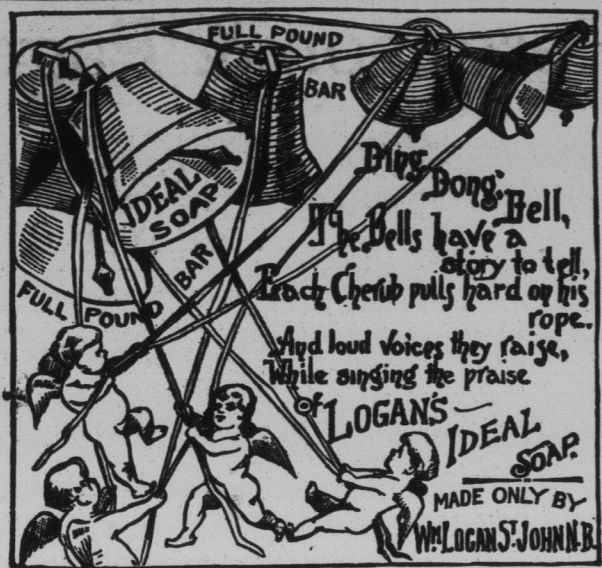 FULL POUND
BAR
IDEAL
SOAP
FULL POUND BAR
Ding
Dong,
Bell,
The Bells have a
story to tell,
Each Cherub pulls hard on his
rope.
And loud voices they raise,
While singing the praise
of LOGAN'S
IDEAL
SOAP.
MADE ONLY BY
WM LOGAN ST. JOHN N.B.